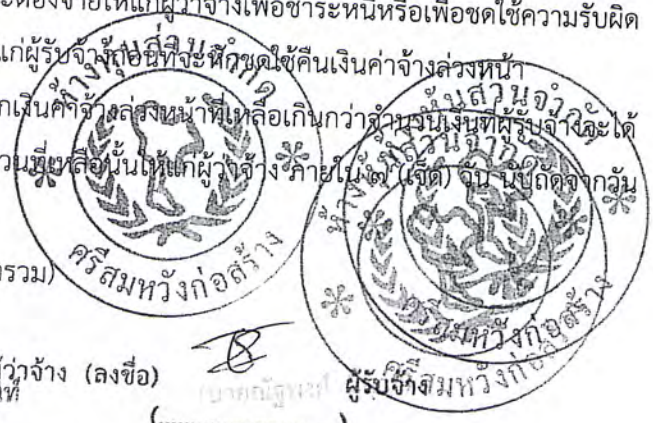 จะต้องจ่ายให้แก่ผู้ว่าจ้างเพื่อชำระหนี้หรือเพื่อชดใช้ความรับผิด
แก่ผู้รับจ้างก่อนที่จะหักชดใช้คืนเงินค่าจ้างล่วงหน้า
กเงินค่าจ้างล่วงหน้าที่เหลือเกินกว่าจำนวนเงินที่ผู้รับจ้างจะได้
วนที่เหลือนั้นให้แก่ผู้ว่าจ้าง ภายใน ๗ (เจ็ด) วัน นับถัดจากวัน
ห้างหุ้นส่วนจำกัด
ศรีสมหวังก่อสร้าง
ห้างหุ้นส่วนจำกัด
ศรีสมหวังก่อสร้าง
ห้างหุ้นส่วนจำกัด
ศรีสมหวังก่อสร้าง
ารวม)
ผู้ว่าจ้าง (ลงชื่อ) ผู้รับจ้าง